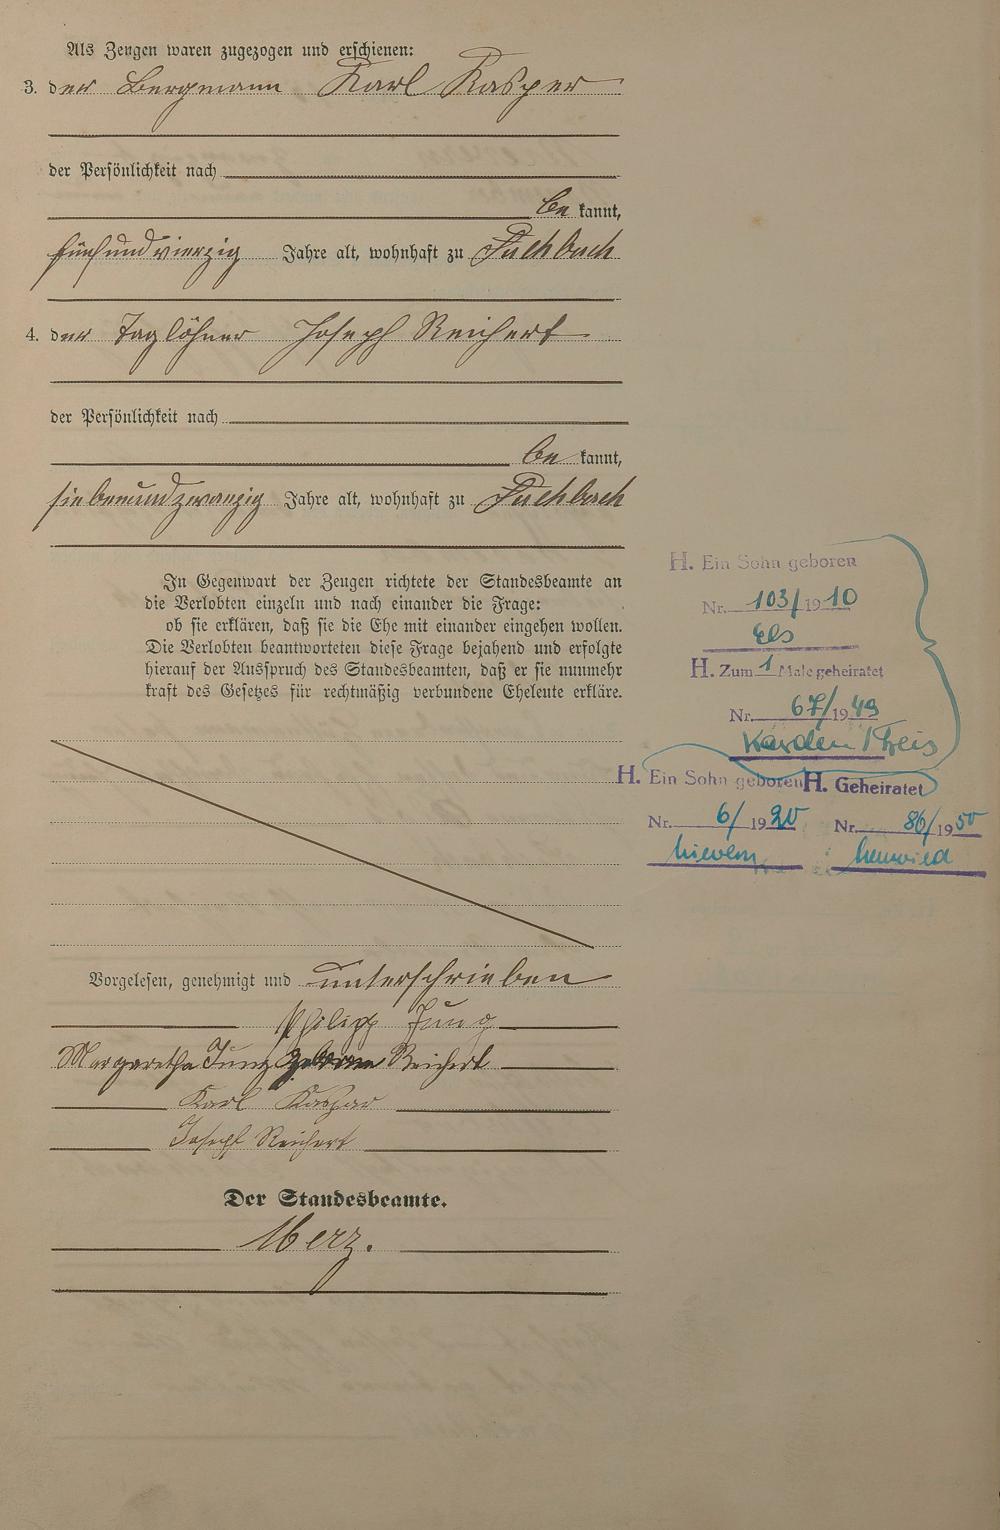 Als Zeugen waren zugezogen und erschienen:
3. der Bergmann Karl Kasper
der Persönlichkeit nach
be kannt,
fünfundvierzig Jahre alt, wohnhaft zu Fachbach
4. der Taglöhner Joseph Reichert
der Persönlichkeit nach
be kannt,
siebenundzwanzig Jahre alt, wohnhaft zu Fachbach
In Gegenwart der Zeugen richtete der Standesbeamte an
die Verlobten einzeln und nach einander die Frage:
ob sie erklären, daß sie die Ehe mit einander eingehen wollen.
Die Verlobten beantworteten diese Frage bejahend und erfolgte
hierauf der Ausspruch des Standesbeamten, daß er sie nunmehr
kraft des Gesetzes für rechtmäßig verbundene Eheleute erkläre.
Vorgelesen, genehmigt und unterschrieben
Philipp Jung
Margaretha Jung geborene Reichert
Karl Kaspar
Joseph Reichert
Der Standesbeamte.
Merz.
H. Ein Sohn geboren
Nr. 103/1910
Els
H. Zum 1 Male geheiratet
Nr. 67/1949
Karden
H. Ein Sohn geboren
Nr. 6/1920
Nievern
H. Geheiratet
Nr. 86/1950
Neuwied